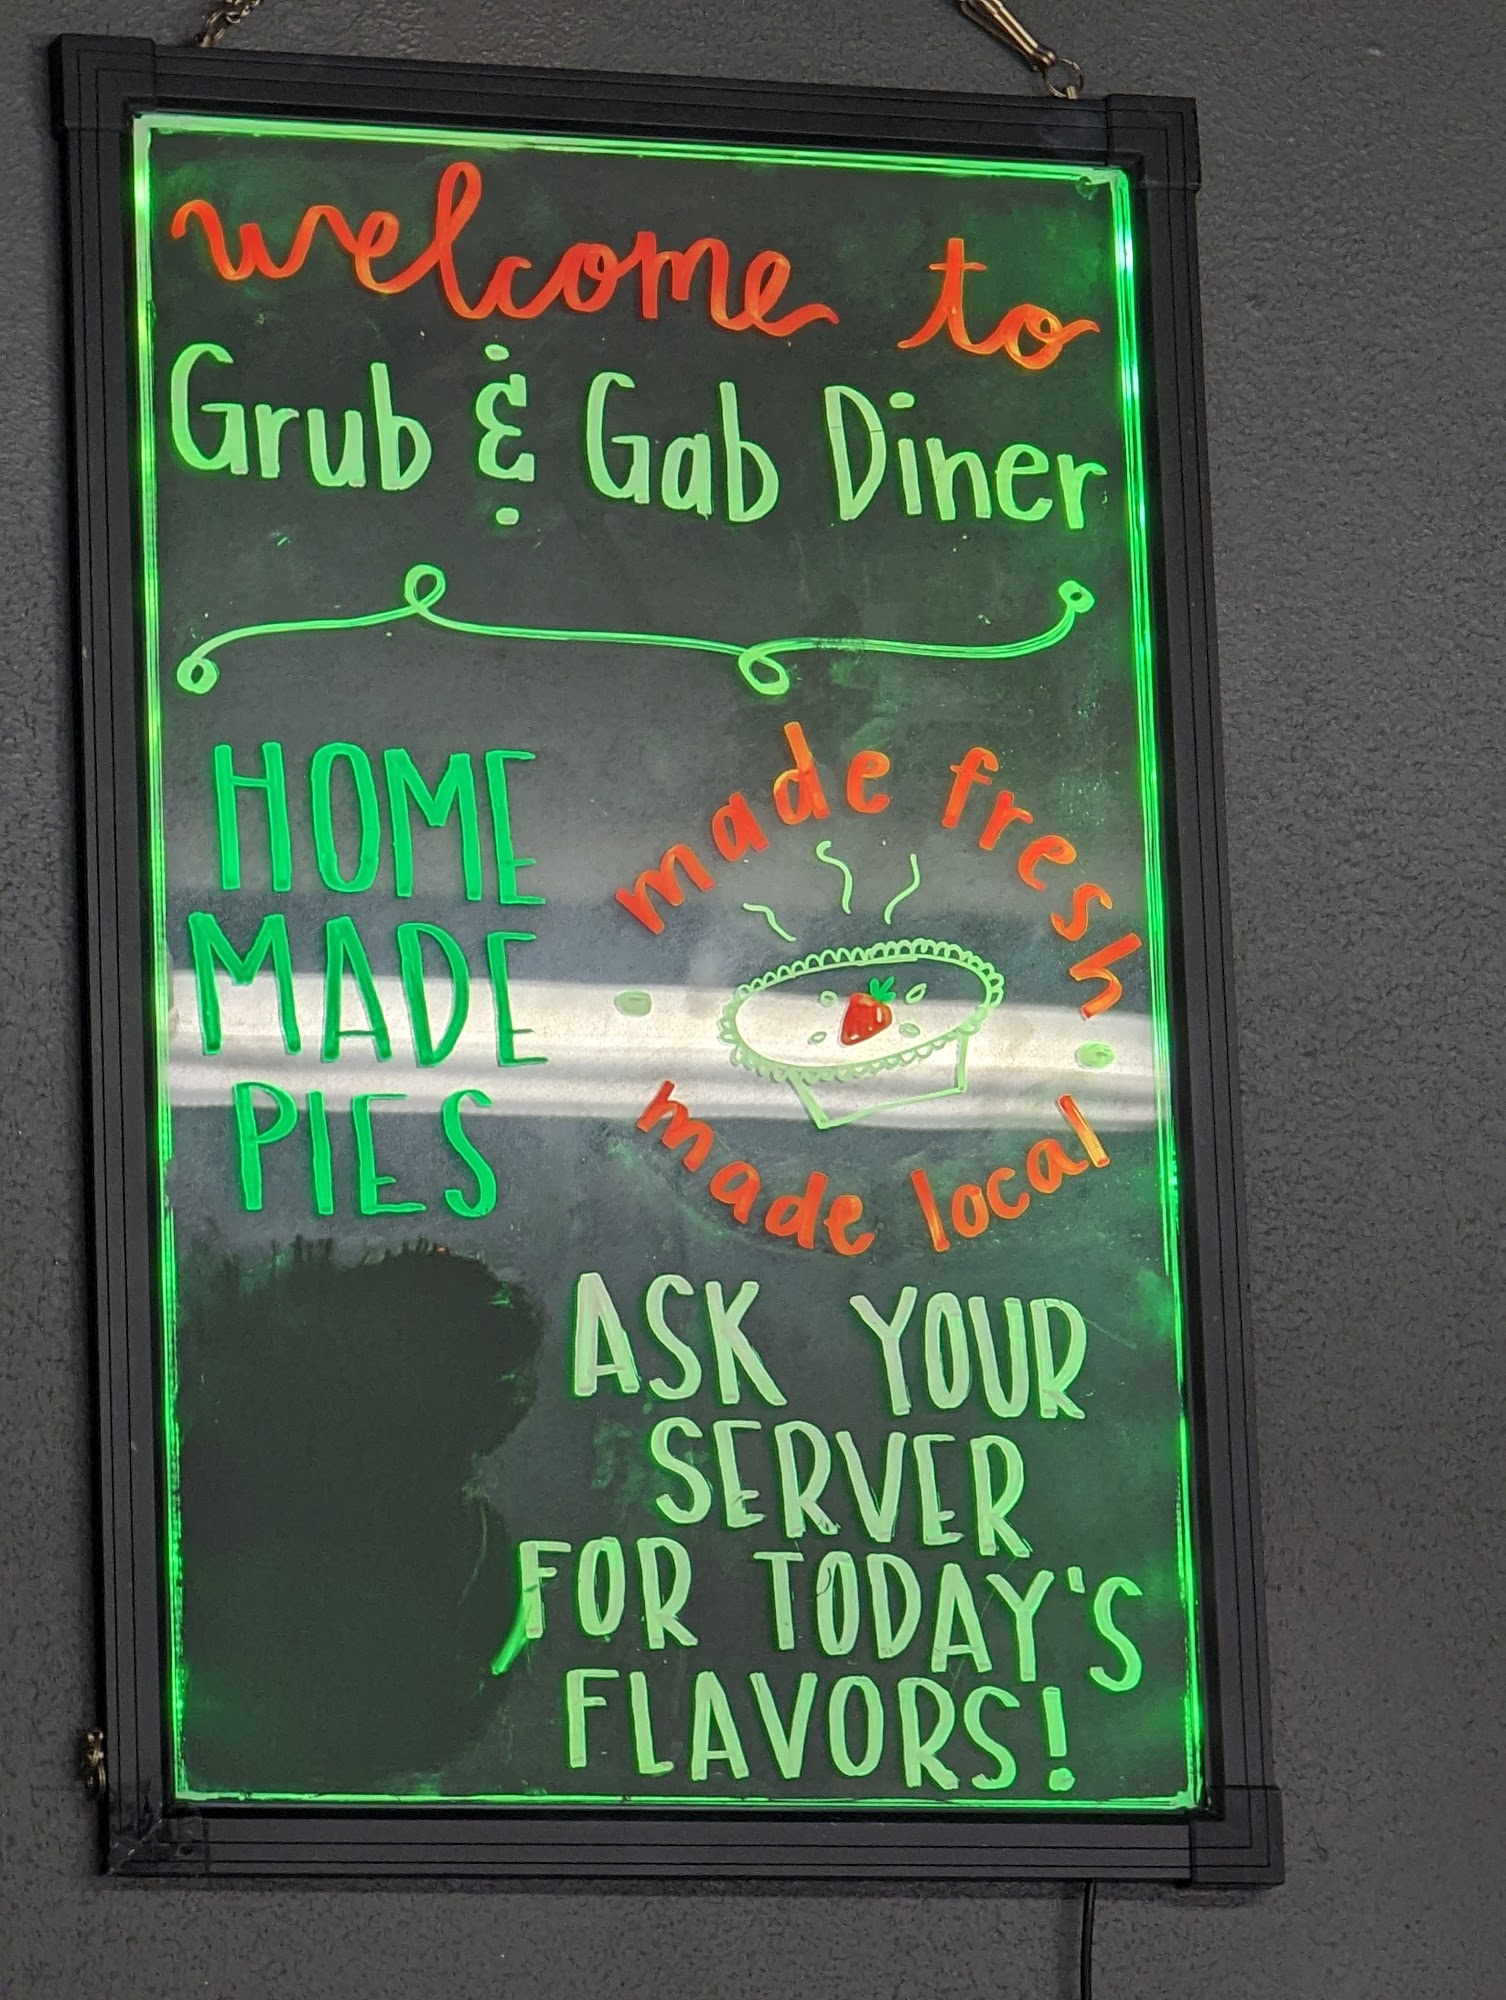 welcome to
Grub & Gab Diner
HOME
MADE
PIES
made fresh
made local
ASK YOUR
SERVER
FOR TODAY'S
FLAVORS!